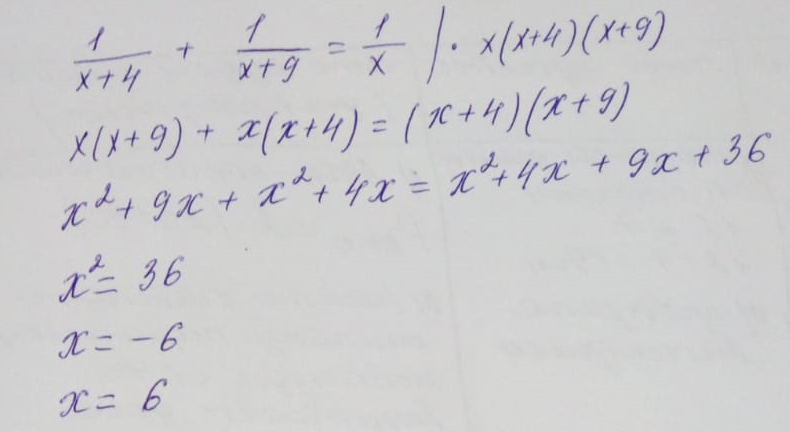 1/(x+4) + 1/(x+9) = 1/x | · x(x+4)(x+9)
x(x+9) + x(x+4) = (x+4)(x+9)
x² + 9x + x² + 4x = x² + 4x + 9x + 36
x² = 36
x = -6
x = 6